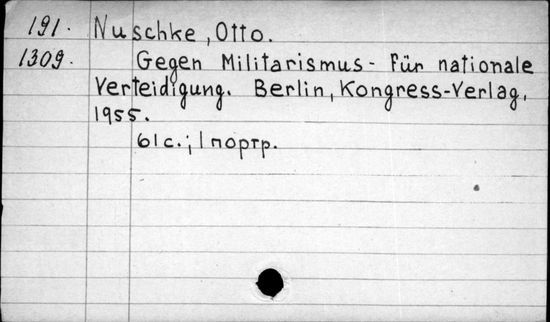 191. Nuschke, Otto.
1309. Gegen Militarismus - Für nationale
Verteidigung. Berlin, Kongress-Verlag,
1955.
61 с.; 1 портр.